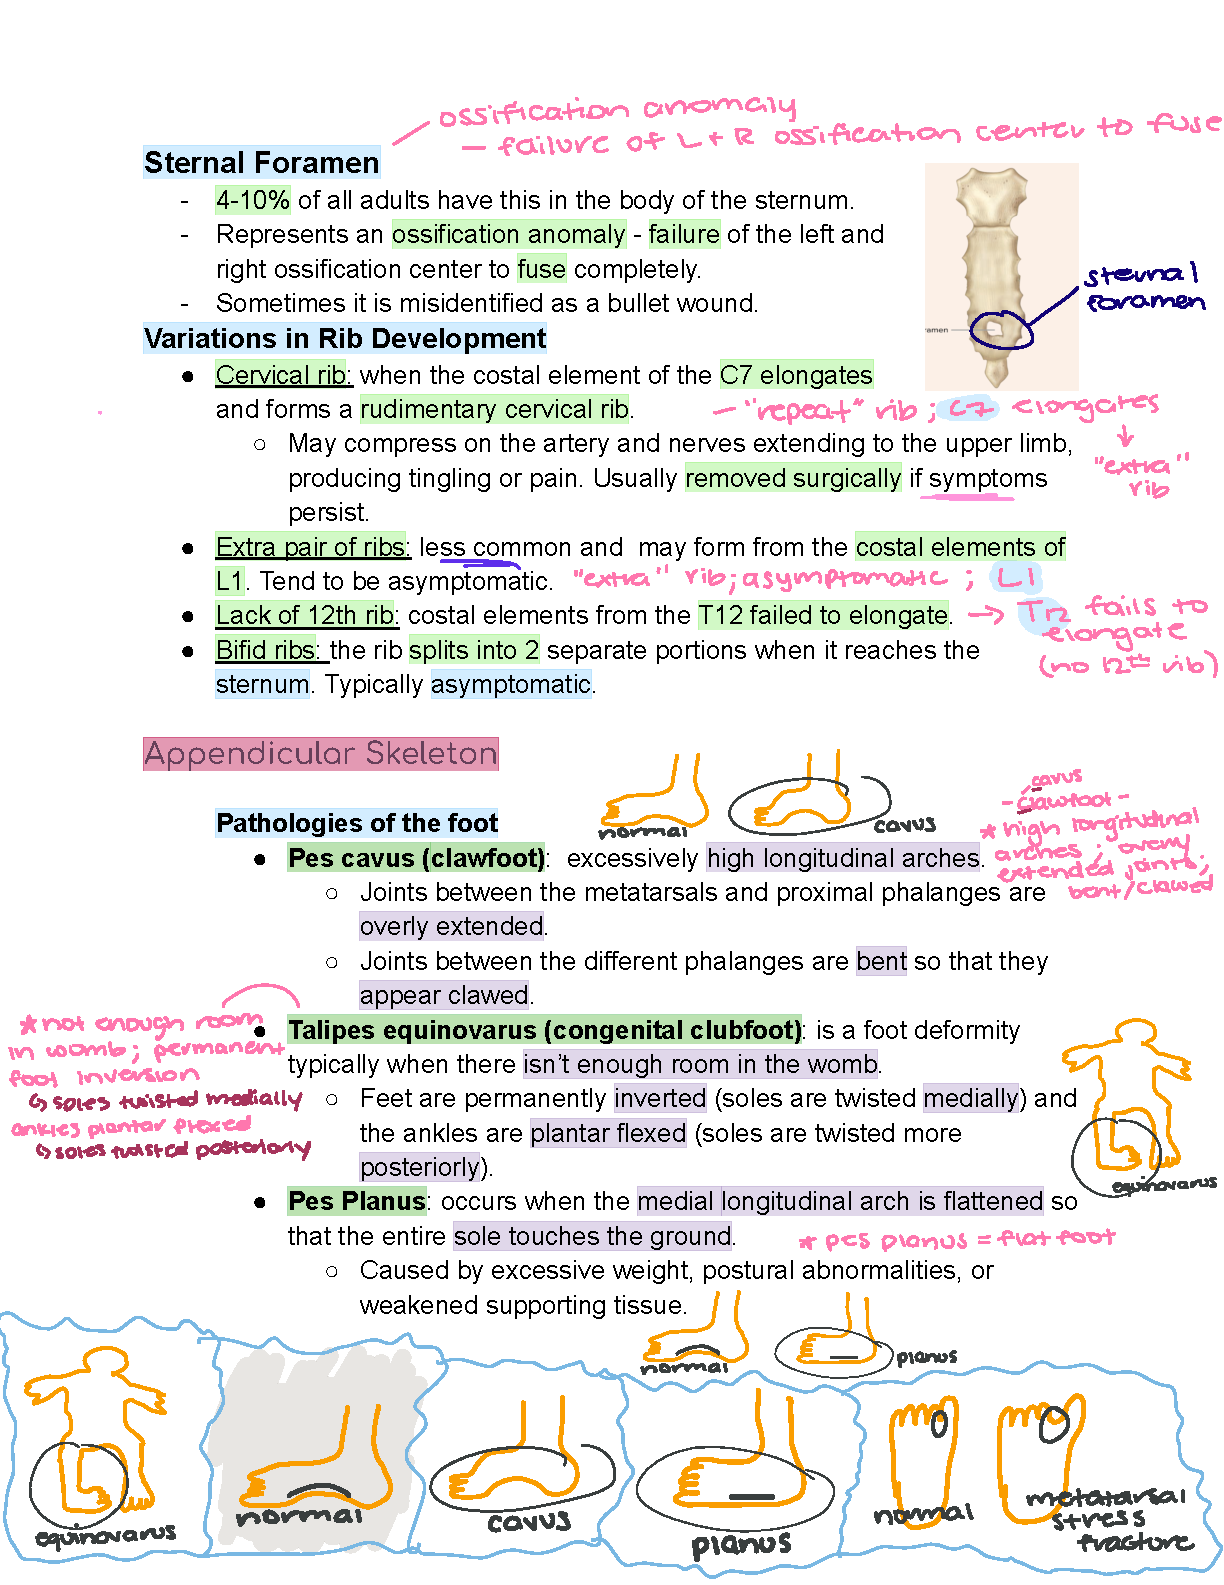 ossification anomaly
— failure of L + R ossification center to fuse
Sternal Foramen
- 4-10% of all adults have this in the body of the sternum.
- Represents an ossification anomaly - failure of the left and
right ossification center to fuse completely.
- Sometimes it is misidentified as a bullet wound.
sternal
foramen
ramen
Variations in Rib Development
● Cervical rib: when the costal element of the C7 elongates
and forms a rudimentary cervical rib.
— "repeat" rib ; C7 elongates
↓
"extra"
rib
○ May compress on the artery and nerves extending to the upper limb,
producing tingling or pain. Usually removed surgically if symptoms
persist.
● Extra pair of ribs: less common and may form from the costal elements of
L1. Tend to be asymptomatic. "extra" rib; asymptomatic ; L1
● Lack of 12th rib: costal elements from the T12 failed to elongate.
→ T12 fails to
elongate
(no 12th rib)
● Bifid ribs: the rib splits into 2 separate portions when it reaches the
sternum. Typically asymptomatic.
Appendicular Skeleton
normal
cavus
cavus
- clawfoot -
* high longitudinal
arches ; overly
extended joints;
bent/clawed
Pathologies of the foot
● Pes cavus (clawfoot): excessively high longitudinal arches.
○ Joints between the metatarsals and proximal phalanges are
overly extended.
○ Joints between the different phalanges are bent so that they
appear clawed.
* not enough room
in womb; permanent
foot inversion
↳ soles twisted medially
ankles plantar flexed
↳ soles twisted posteriorly
● Talipes equinovarus (congenital clubfoot): is a foot deformity
typically when there isn’t enough room in the womb.
○ Feet are permanently inverted (soles are twisted medially) and
the ankles are plantar flexed (soles are twisted more
posteriorly).
equinovarus
● Pes Planus: occurs when the medial longitudinal arch is flattened so
that the entire sole touches the ground.
* pes planus = flat foot
○ Caused by excessive weight, postural abnormalities, or
weakened supporting tissue.
normal
planus
equinovarus
normal
cavus
planus
normal
metatarsal
stress
fracture